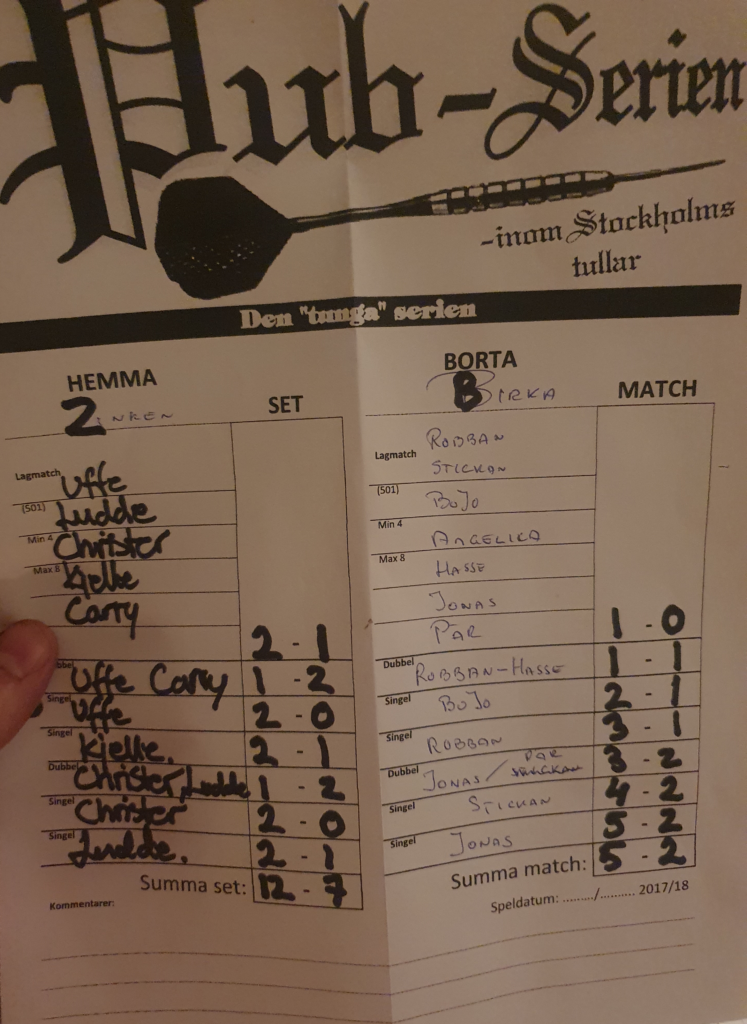 Pub-Serien
-inom Stockholms
tullar
Den "tunga" serien
HEMMA
Zinken
SET
Lagmatch Uffe
(501) Ludde
Min 4 Christer
Max 8 Kjelle
Carry
2 - 1
Dubbel Uffe Carry 1 - 2
Singel Uffe 2 - 0
Singel Kjelle. 2 - 1
Dubbel Christer, Ludde 1 - 2
Singel Christer 2 - 0
Singel Ludde. 2 - 1
Summa set: 12 - 7
Kommentarer:
BORTA
BIRKA
MATCH
Lagmatch ROBBAN
STICKAN
(501) BOJO
Min 4 ANGELICA
Max 8 HASSE
JONAS
PÄR
1 - 0
Dubbel ROBBAN-HASSE 1 - 1
Singel BOJO 2 - 1
Singel ROBBAN 3 - 1
Dubbel JONAS / PÄR 3 - 2
Singel STICKAN 4 - 2
Singel JONAS 5 - 2
Summa match: 5 - 2
Speldatum: ........./.......... 2017/18